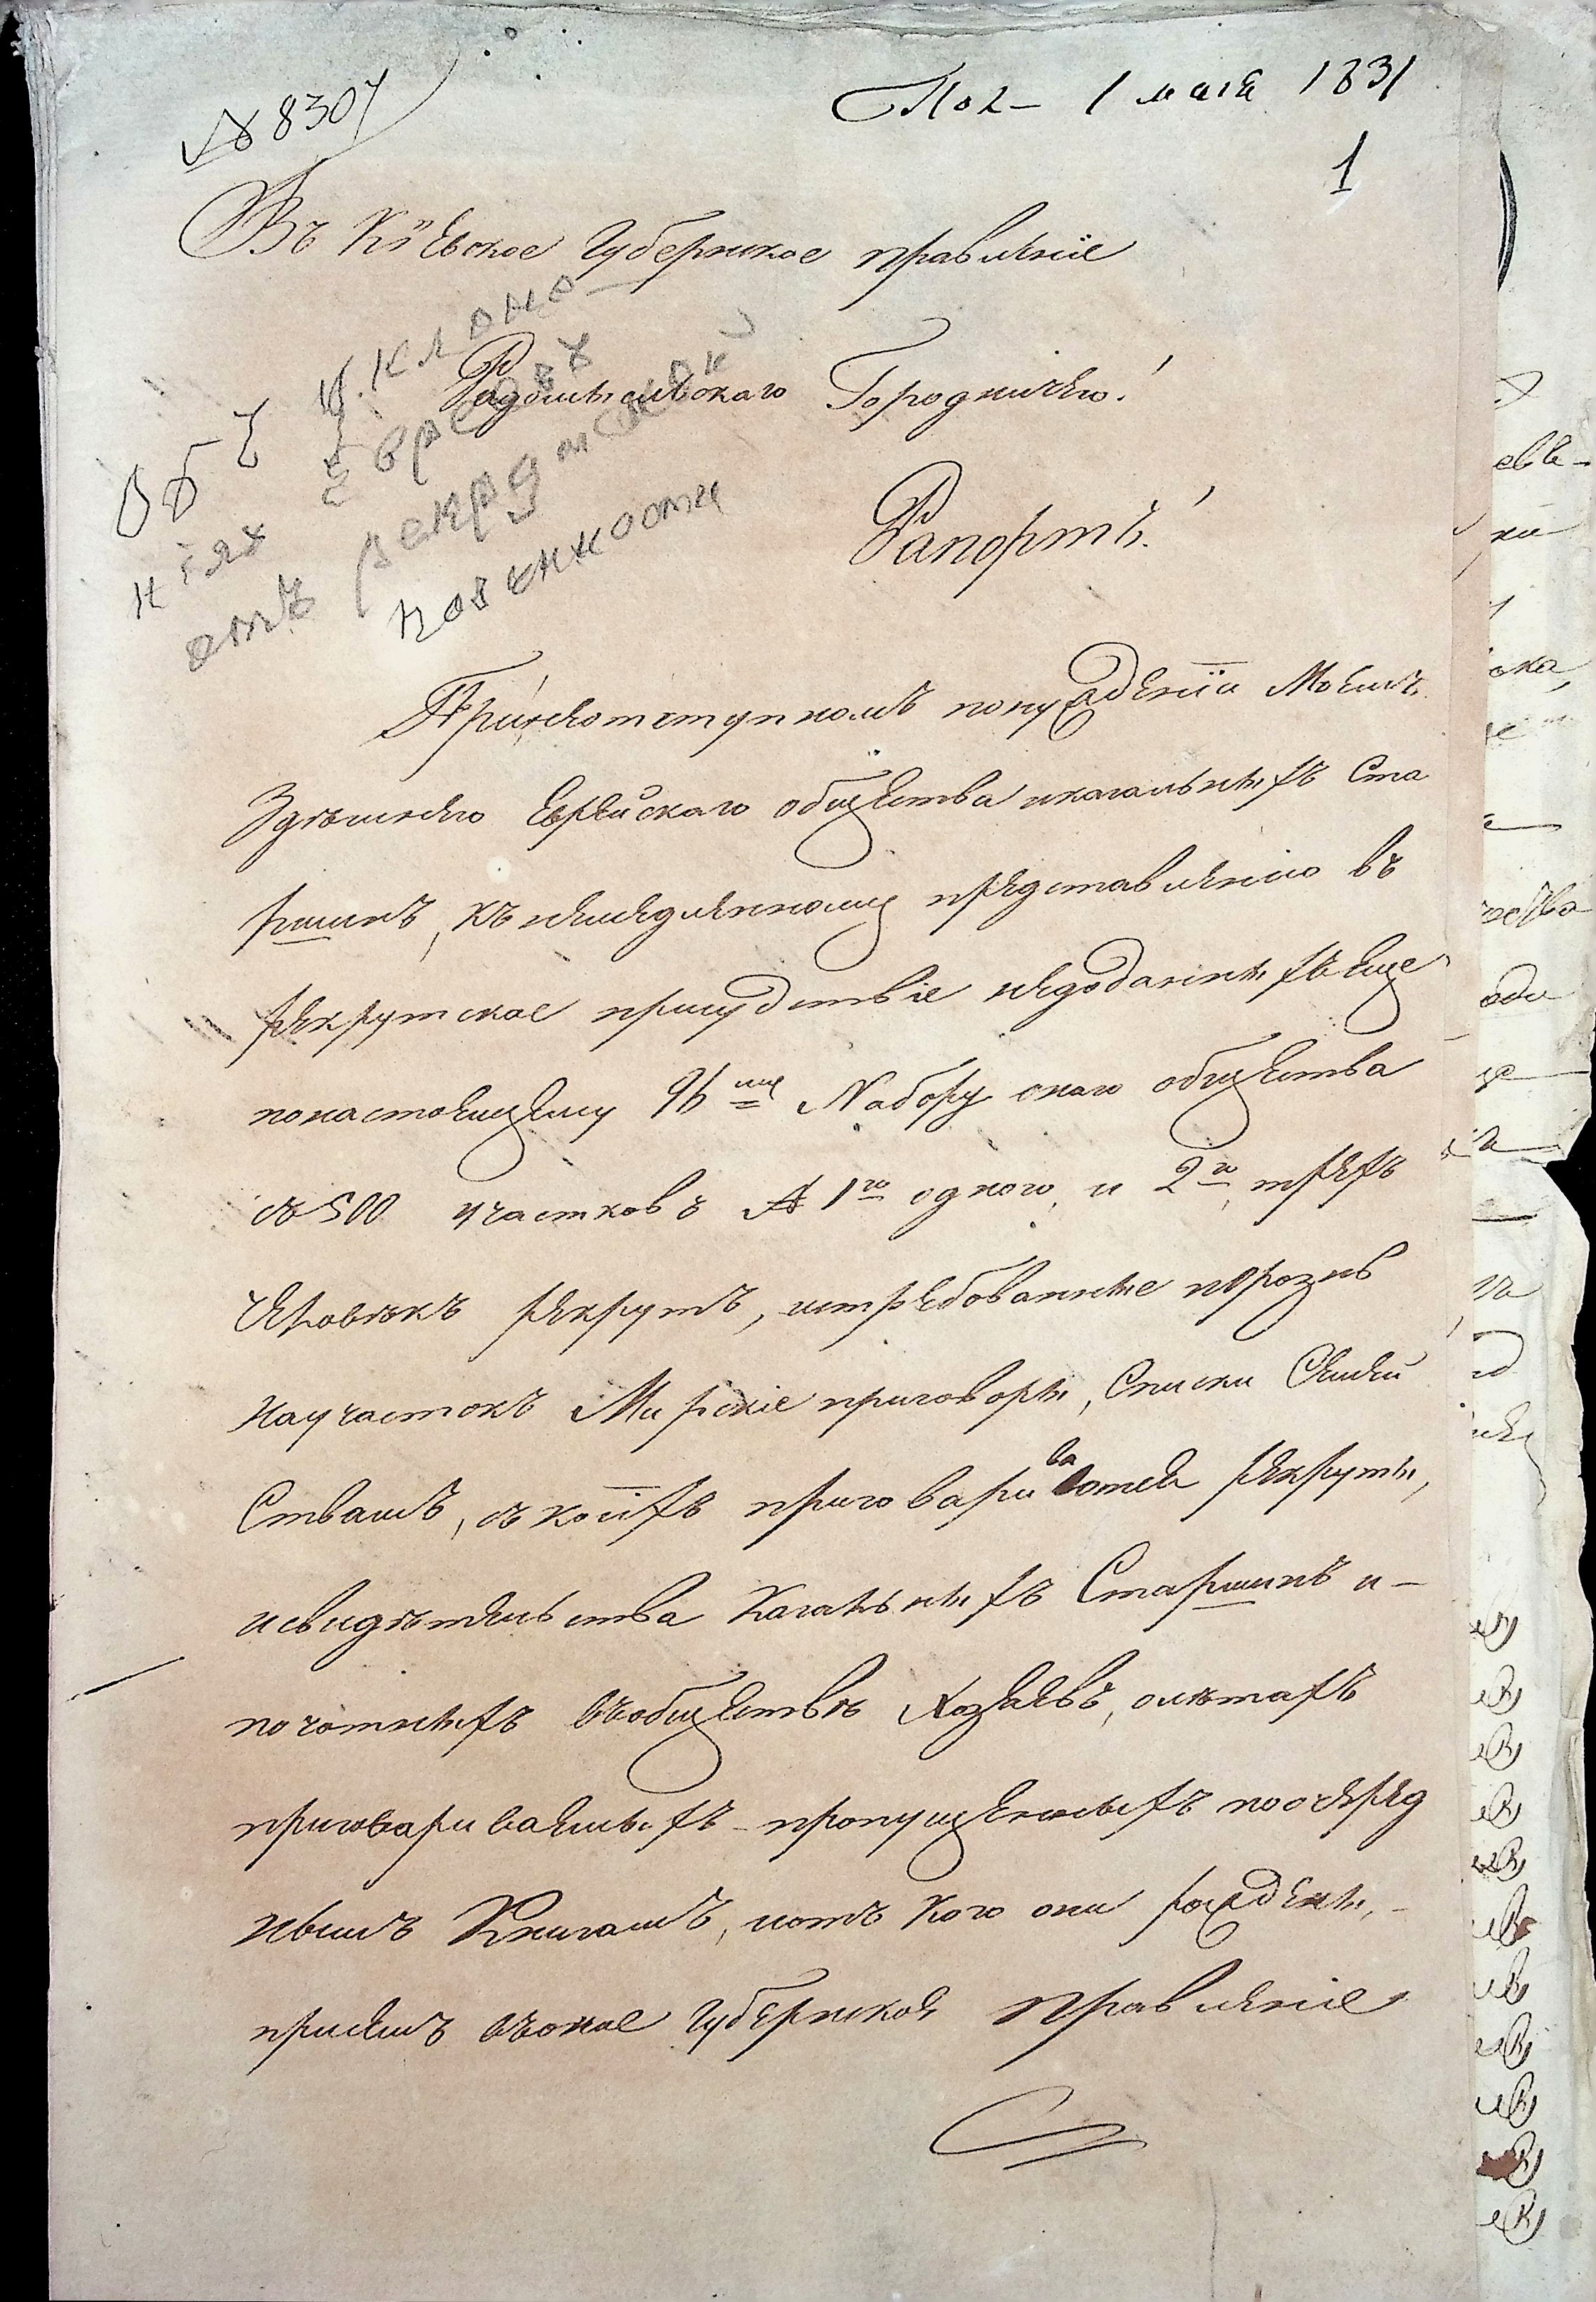 № 8307
Пол– 1 мая 1831
1
Въ Кіевское Губернское правленіе
Радомысльскаго Городничего!
Рапортъ!
Объ уклоне
ніях Евреевъ
отъ рекрутской
повинности
При неотступномъ понуждѣніи Моемъ
Здѣшнего Еврейскаго общества икагальныхъ Ста
ршинъ, къ немедленному представленію въ
рекрутское присудствіе недоданныхъ еще
понастоещему 96му Набору онаго общества
съ 500 участковъ 1го одного, и 2го трехъ
человѣкъ рекрутъ, истребованные порознь
научастокъ Мирскіе приговоры, Списки Семей
Ствамъ, съ коіхъ приговариваются рекруты,
исвидѣтельства Кагальныхъ Старшинъ и–
почотныхъ въобществѣ Хозяевъ, олѣтахъ
приговариваемыхъ пропущенныхъ поочеред
нымъ Книгамъ, иотъ Кого они рождены,
присемъ въоное Губернское Правленіе